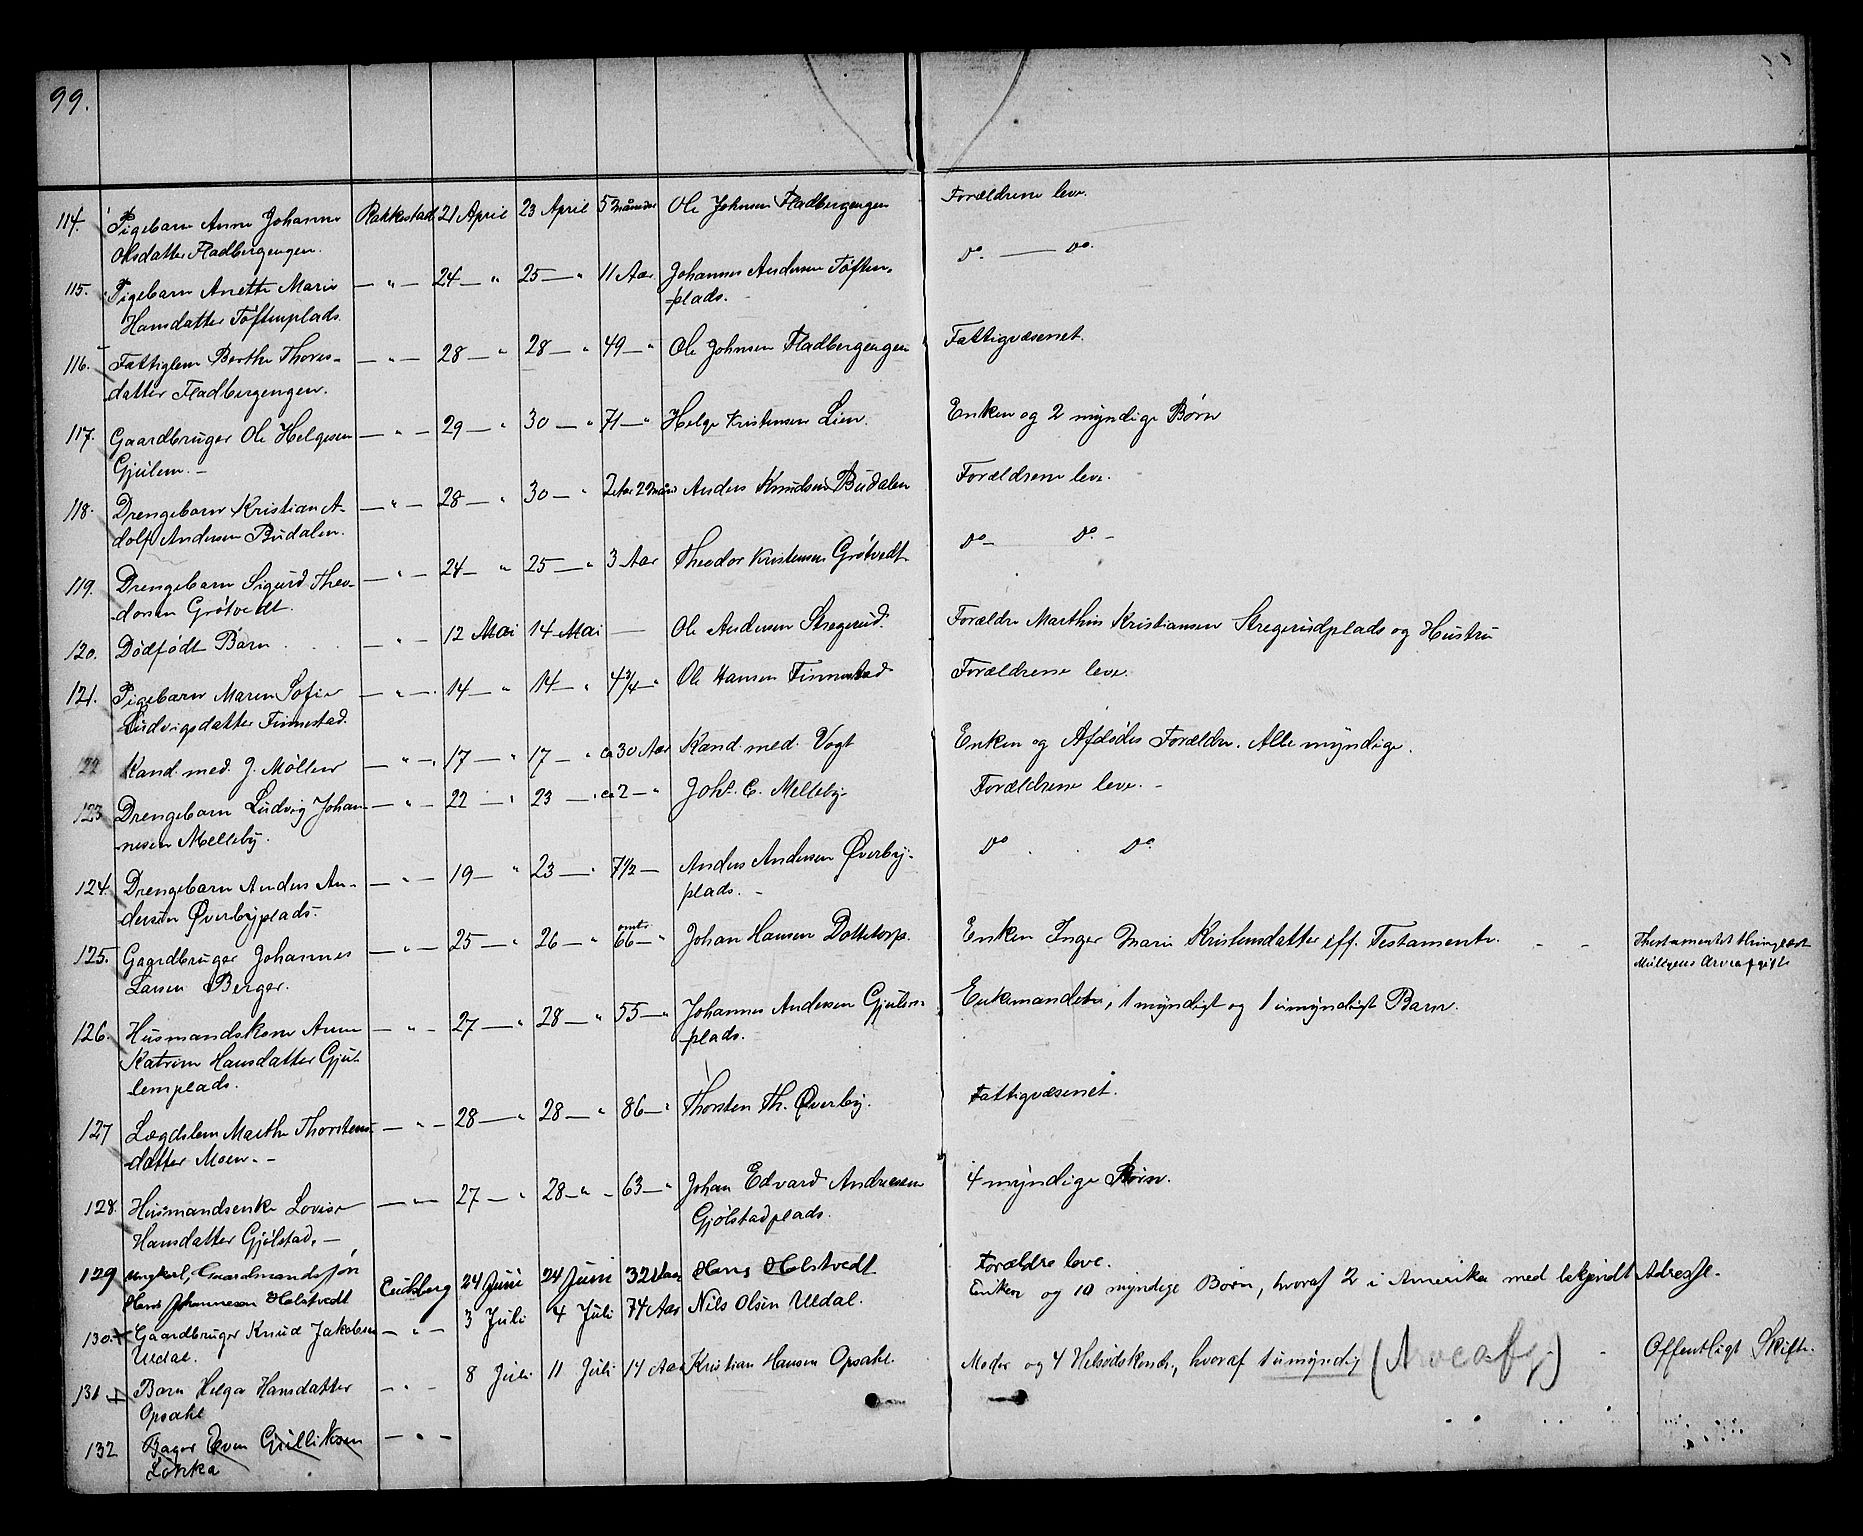 99.
114. Pigebarn Anne Johanne Rakkestad 21 April 23 April 5 Måneder Ole Johnsen Fladbergengen Forældrene leve.
Olsdatter Fladbergengen.
115. Pigebarn Anette Marie — „ — 24 — „ 25 — „ 11 Aar Johannes Andersen Tøften- Do. — Do.
Hansdatter Tøftenplads. plads.
116. Fattiglem Berthe Thores- — „ — 28 — „ 28 — „ 49 — „ Ole Johnsen Fladbergengen Fattigvæsenet.
datter Fladbergengen.
117. Gaardbruger Ole Helgesen — „ — 29 — „ 30 — „ 71 — „ Helge Kristensen Lien. Enken og 2 myndige Børn
Gjulem. —
118. Drengebarn Kristian A- — „ — 28 — „ 30 — „ 2 Aar 2 Mån Anders Knudsen Budalen Forældrene leve.
dolf Andersen Budalen.
119. Drengebarn Sigurd Theo- — „ — 24 — „ 25 — „ 3 Aar Theodor Kristensen Grøtvedt Do — Do. —
dorsen Grøtvedt.
120. Dødfødt Barn . . . — „ — 12 Mai 14 Mai — Ole Andersen Stregerud. Forældre Marthin Kristiansen Stregerudplads og Hustru
121. Pigebarn Maren Sofie — „ — 14 — „ 14 — „ 4 3/4 — „ Ole Hansen Finnestad Forældrene leve.
Ludvigsdatter Finnestad.
122 Kand. med. J. Møller — „ — 17 — „ 17 — „ ca 30 Aar Kand. med. Vogt Enken og Afdødes Forældre. Alle myndige.
123 Drengebarn Ludvig Johan- — „ — 22 — „ 23 — „ ca 2 — „ Johs. C. Melleby- Forældrene leve. —
nesen Melleby.
124. Drengebarn Anders An- — „ — 19 — „ 23 — „ 7 1/2 — Anders Andersen Øverby- Do . . Do.
dersen Øverbyplads. plads. —
125. Gaardbruger Johannes — „ — 25 — „ 26 — „ omtr 66 — „ Johan Hansen Dottetorp. Enken Inger Marie Kristensdatter eff. Testamente. — — Thestamentet thinglæst
Larsen Berger. Arveafgift
126. Husmandskone Anne — „ — 27 — „ 28 — „ 55 — „ Johannes Andersen Gjulem- Enkemanden, 1 myndigt og 1 umyndigt Barn.
Katrine Hansdatter Gju- plads.
lemplads.
127 Lægdslem Marthe Thorstens- — „ — 28 — „ 28 — „ 86 — „ Thorsten Th. Øverby. Fattigvæsenet.
datter Moen. —
128. Husmandsenke Lovise — „ — 27 — „ 28 — „ — 63 — „ Johan Edvard Andresen 4 myndige Børn.
Hansdatter Gjølstad. — Gjølstadplads.
129 Ungkarl, Gaardmandssøn Eidsberg 24 Juni 24 Juni 32 Aar Hans Holstvedt Forældre leve.
Hans Johannesen Holstvedt
130. + Gaardbruger Knud Jakobsen — „ — 3 Juli 4 Juli 74 Aar Nils Olsen Uldal. Enken og 10 myndige Børn, hvoraf 2 i Amerika med bekjendt Adresse.
Uldal.
131 + Barn Helga Hansdatter — „ — 8 Juli 11 Juli 14 Aar Kristian Hansen Opsahl. Moder og 4 Helsødskende, hvoraf 1 umyndig (Arveafg.) — Offentligt Skifte.
Opsahl
132 Bager Even Gulliksen — „ —
Løkka